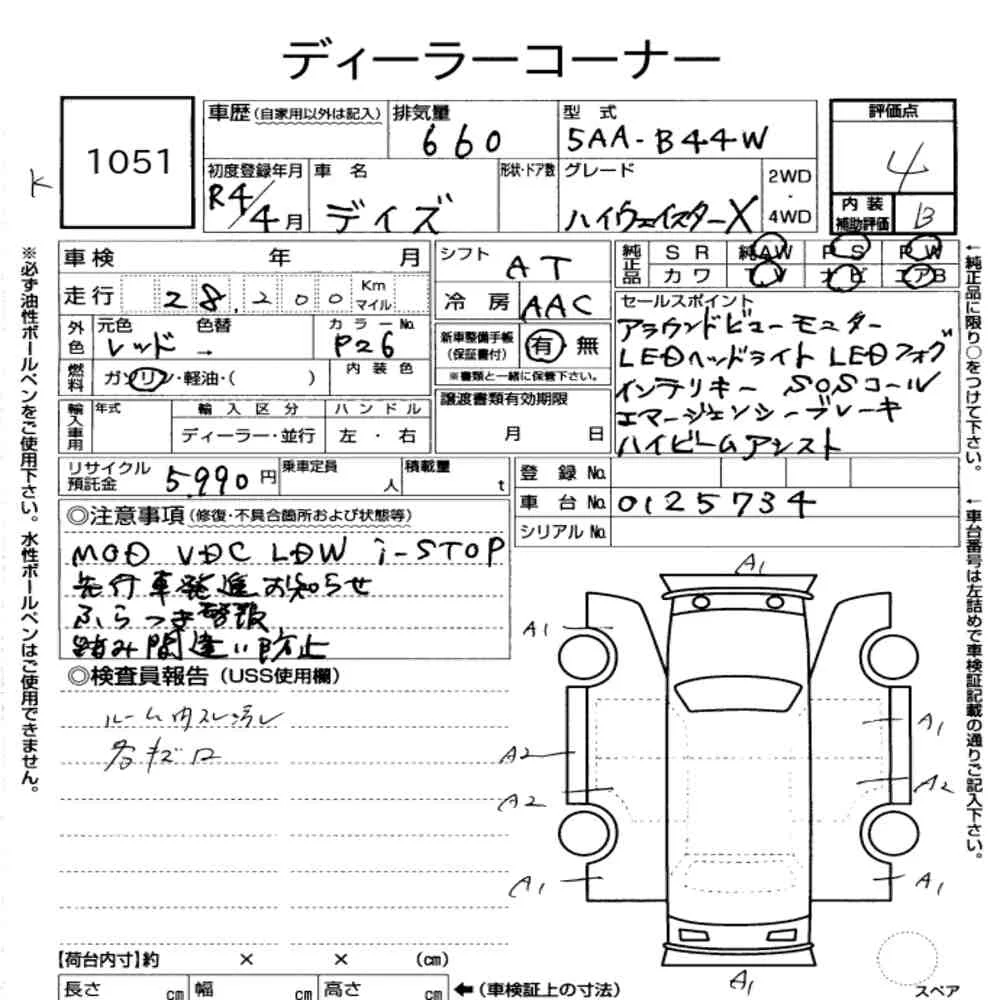 ディーラーコーナー
1051
K
車歴(自家用以外は記入)
排気量
660
型式
5AA-B44W
評価点
4
内装
補助評価
B
初度登録年月
R4/4月
車名
デイズ
形状・ドア数
グレード
ハイウェイスターX
2WD
・
4WD
車検 年 月
シフト
AT
純正品
SR 純AW PS PW
カワ TV ナビ エアB
走行 28,200 Km マイル
冷房 AAC
セールスポイント
アラウンドビューモニター
LEDヘッドライト LEDフォグ
インテリキー SOSコール
エマージェンシーブレーキ
ハイビームアシスト
外色
元色 色替
レッド →
カラーNo.
P26
新車整備手帳
(保証書付)
有 無
※書類と一緒に保管下さい。
燃料
ガソリン・軽油・( )
内装色
輸入車用
年式
輸入区分
ディーラー・並行
ハンドル
左・右
譲渡書類有効期限
月 日
リサイクル
預託金
5,990円
乗車定員
人
積載量
t
登録No.
車台No. 0125734
シリアルNo.
◎注意事項(修復・不具合箇所および状態等)
MOD VDC LDW i-STOP
先行車発進お知らせ
ふらつき警報
踏み間違い防止
◎検査員報告(USS使用欄)
ルーム内スレ汚レ
各キズ凹
A1
A1
A1
A2
A2
A2
A1
A1
A1
【荷台内寸】約 × × (cm)
長さ cm 幅 cm 高さ cm
←(車検証上の寸法)
スペア
※必ず油性ボールペンをご使用下さい。水性ボールペンはご使用できません。
←純正品に限り○をつけて下さい。
←車台番号は左詰めで車検証記載の通りご記入下さい。